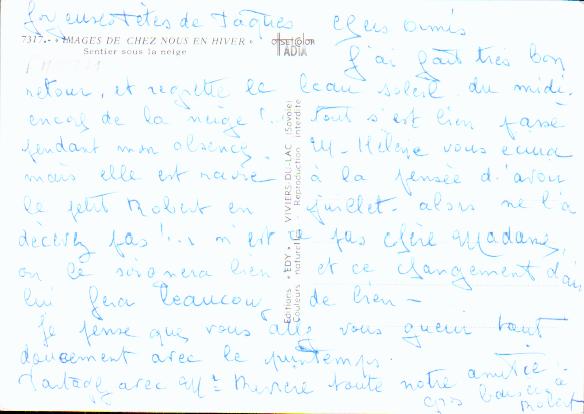 Joyeuses Fêtes de Pâques chers amis
7317. - « IMAGES DE CHEZ NOUS EN HIVER »
Sentier sous la neige
OFFSETCOLOR
IADIA
J'ai fait très bon
retour, et regrette le beau soleil du midi.
encore de la neige !... tout s'est bien passé
pendant mon absence. M-Hélène vous
mais elle est ravie à la pensée d'avoir
le petit Robert en juillet - alors ne l'a
décevez pas !.. n'est ce pas chère Madame,
on le soignera bien et ce changement d'air
lui fera beaucoup de bien -
Je pense que vous allez vous guérir tout
doucement avec le printemps.
Partagez avec Mr toute notre amitié -
gros baisers à
Robert
Editions « EDY » - VIVIERS-DU-LAC (Savoie)
Couleurs naturelles - Reproduction interdite